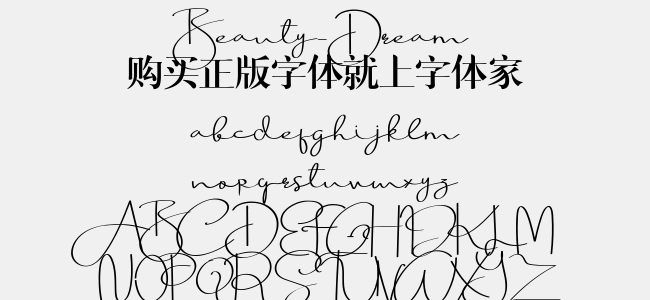 Beauty-Dream
购买正版字体就上字体家
abcdefghijklm
nopqrstuvwxyz
ABCDEFGHIJKLM
NOPQRSTUVWXYZ